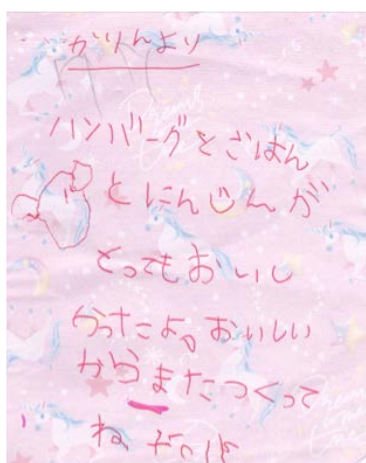 かりんより
ハンバーグとごはん
とにんじんが
とってもおいし
かったよ。おいしい
からまたつくって
ね